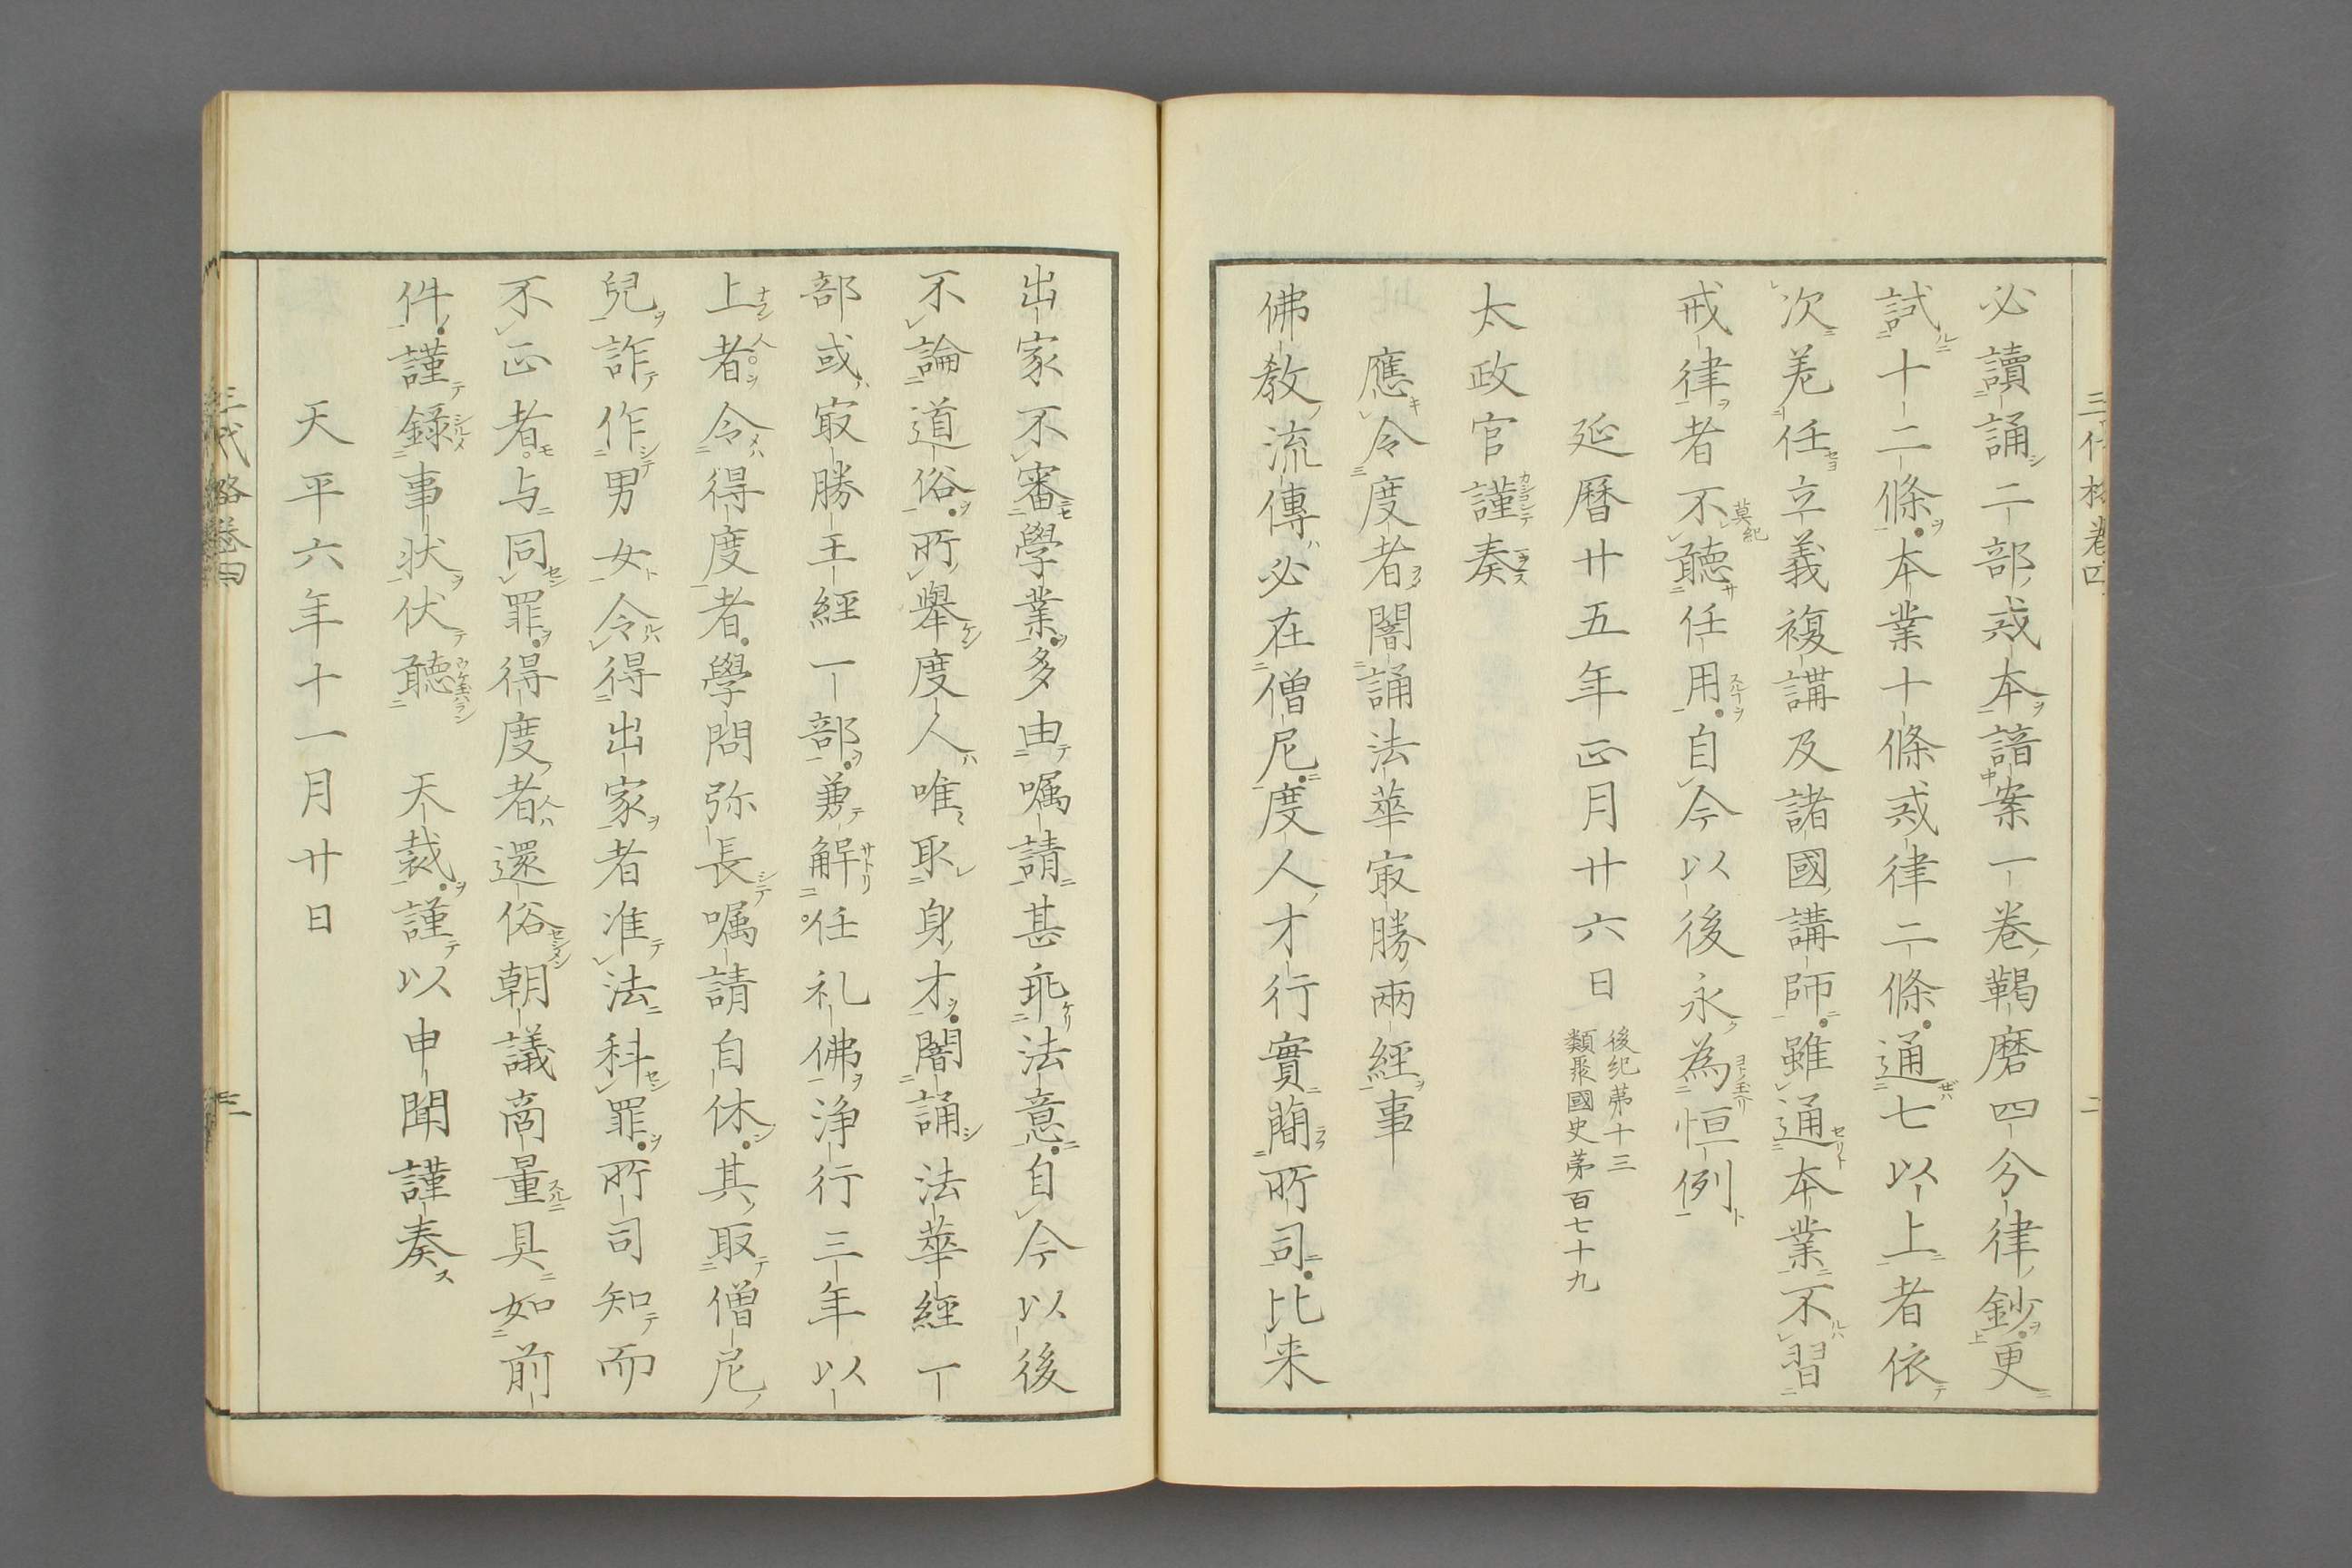 必讀誦二部戒本諳案一卷羯磨四分律鈔更
試十二條本業十條戒律二條通七以上者依
次差任立義複講及諸國講師雖通本業不習
戒律者不聽任用自今以後永為恒例
延曆廿五年正月廿六日
後紀苐十三
類聚國史苐百七十九
太政官謹奏
應令度者闇誦法華㝡勝兩經事
佛教流傳必在僧尼度人才行實簡所司比来
出家不審學業多由囑請甚乖法意自今以後
不論道俗所舉度人唯取身才闇誦法華經一
部或㝡勝王經一部兼解任礼佛淨行三年以
上者令得度者學問弥長囑請自休其取僧尼
兒詐作男女令得出家者准法科罪所司知而
不正者与同罪得度者還俗朝議商量具如前
件謹錄事狀伏聽　天裁謹以申聞謹奏
天平六年十一月廿日